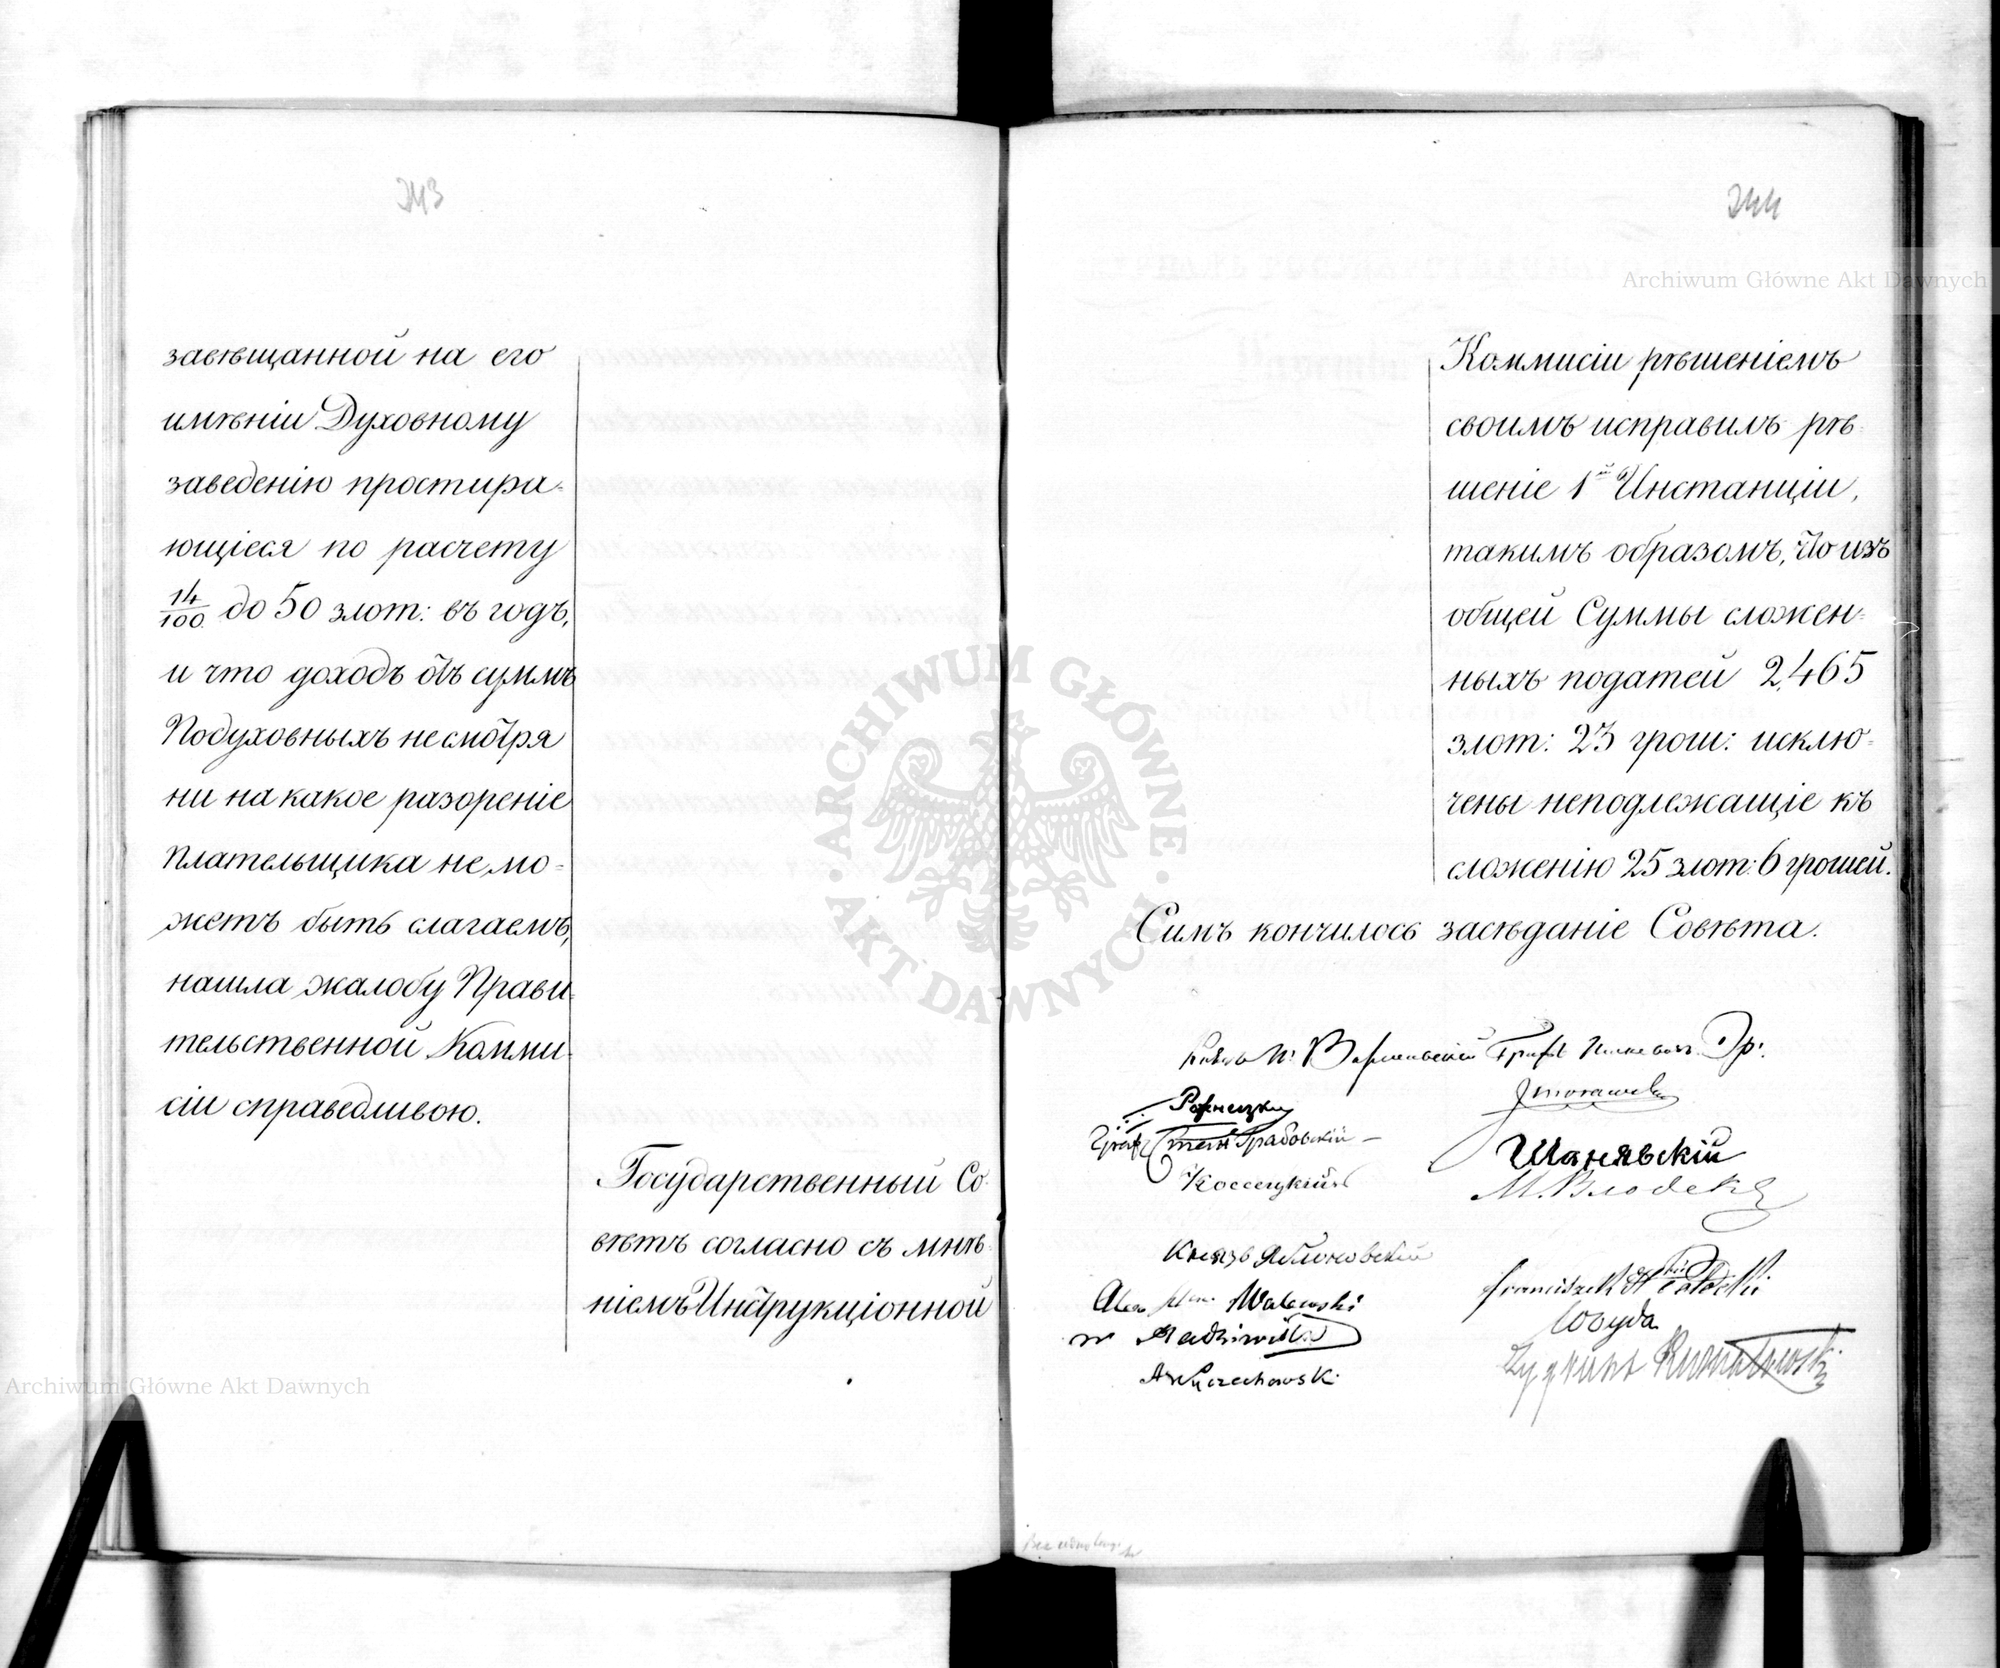 243
завѣщанной на его
имѣніи Духовному
заведенію простира-
ющіеся по расчету
14/100 до 50 злот: въ годъ,
и что доходъ отъ суммъ
Подуховныхъ несмотря
ни на какое разореніе
плательщика не мо-
жетъ быть слагаемъ,
нашла жалобу Прави-
тельственной Комми-
сіи справедливою.
Государственный Со-
вѣтъ согласно съ мнѣ-
ніемъ Инструкціонной
244
Коммисіи рѣшеніемъ
своимъ исправилъ рѣ-
шеніе 1й Инстанціи,
такимъ образомъ, что изъ
общей Суммы сложен-
ныхъ податей 2,465
злот: 23 грош: исклю-
чены неподлежащіе къ
сложенію 25 злот: 6 грошей.
Симъ кончилось засѣданіе Совѣта.
Князь Варшавскій Графъ
Рожнецкій
Графъ Стефанъ Грабовскій
Шанявскій
Коссецкій
М. Влодекъ
Князь Яблоновскій
Franciszek Potocki
Walewski
Woyda
Radziwiłł
Zygmunt
Wyczechowski
Archiwum Główne Akt Dawnych
Archiwum Główne Akt Dawnych
ARCHIWUM GŁÓWNE AKT DAWNYCH